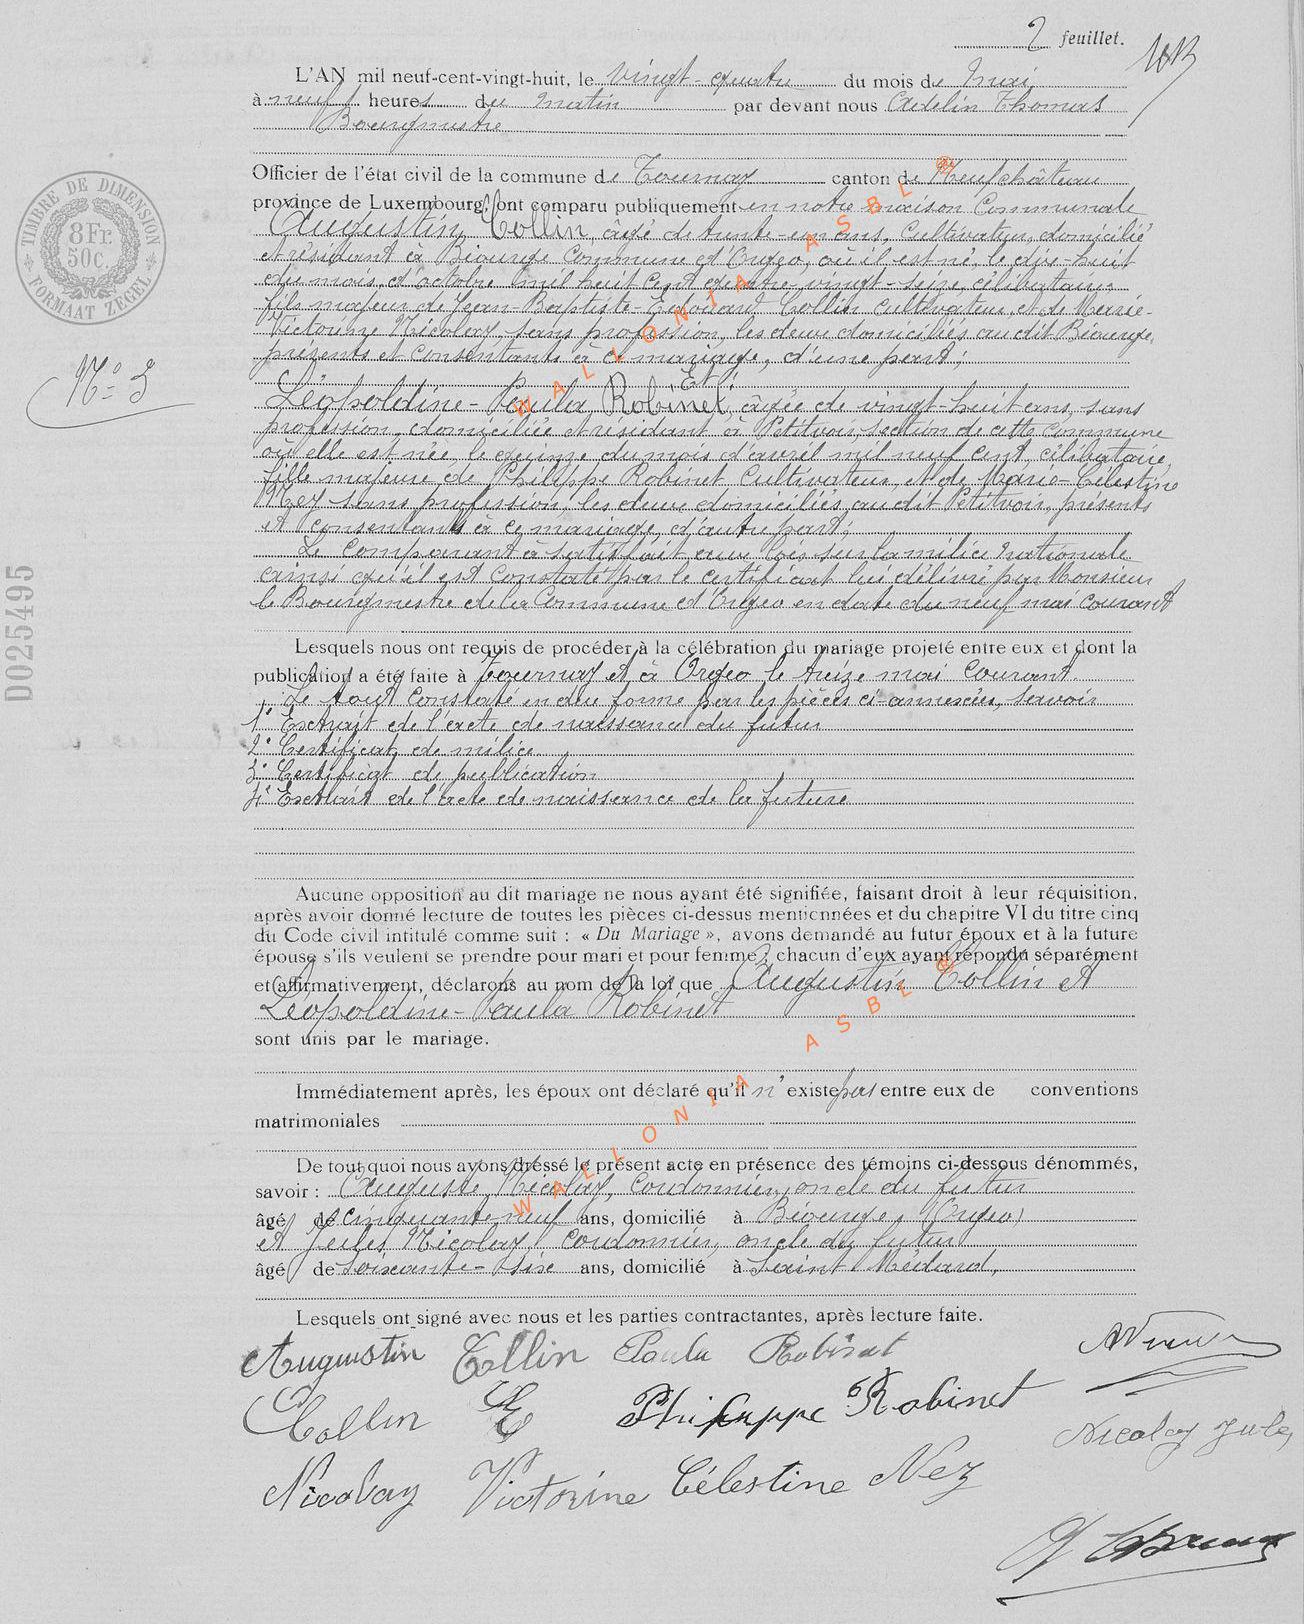 2 feuillet.
L'AN mil neuf-cent-vingt-huit, le vingt-quatre du mois de mai
à neuf heures du matin par devant nous Adelin Thomas
Bourgmestre
Officier de l'état civil de la commune de Tournay canton de Neufchâteau
province de Luxembourg, ont comparu publiquement en notre maison Communale
Augustin Collin, âgé de trente-un ans, Cultivateur, domicilié
et résidant à Biourge Commune d'Orgeo, où il est né le dix-huit
du mois d'octobre mil huit cent quatre-vingt-seize célibataire
fils majeur de Jean-Baptiste-Edouard Collin cultivateur et de Marie-
Victorine Nicolay, sans profession, les deux domiciliés au dit Biourge,
présents et consentants à ce mariage, d'une part;
Et
Léopoldine-Paula Robinet, âgée de vingt-huit ans, sans
profession, domiciliée et résidant à Petitvoir, section de cette commune
où elle est née, le quinze du mois d'avril mil neuf cent, célibataire,
fille majeure de Philippe Robinet Cultivateur, et de Marie-Célestine
Nez sans profession, les deux domiciliés au dit Petitvoir, présents
et consentants à ce mariage, d'autre part;
Le Comparant à satisfait aux lois sur la milice nationale
ainsi qu'il est constaté par le certificat lui délivré par Monsieur
le Bourgmestre de la Commune d'Orgeo en date du neuf mai courant
Lesquels nous ont requis de procéder à la célébration du mariage projeté entre eux et dont la
publication a été faite à Tournay et à Orgeo le treize mai courant
Le tout constaté en due forme par les pièces ci-annexées, savoir
1° Extrait de l'acte de naissance du futur
2° Certificat de milice
3° Certificat de publication
4° Extrait de l'acte de naissance de la future
Aucune opposition au dit mariage ne nous ayant été signifiée, faisant droit à leur réquisition,
après avoir donné lecture de toutes les pièces ci-dessus mentionnées et du chapitre VI du titre cinq
du Code civil intitulé comme suit : « Du Mariage », avons demandé au futur époux et à la future
épouse s'ils veulent se prendre pour mari et pour femme ; chacun d'eux ayant répondu séparément
et affirmativement, déclarons au nom de la loi que Augustin Collin et
Léopoldine-Paula Robinet
sont unis par le mariage.
Immédiatement après, les époux ont déclaré qu'il n'existe pas entre eux de conventions
matrimoniales
De tout quoi nous avons dressé le présent acte en présence des témoins ci-dessous dénommés,
savoir : Auguste Nicolay, Cordonnier, oncle du futur
âgé de cinquante neuf ans, domicilié à Biourge, (Orgeo)
et Jules Nicolay, Cordonnier, oncle du futur
âgé de soixante-six ans, domicilié à Saint Médard,
Lesquels ont signé avec nous et les parties contractantes, après lecture faite.
Augustin Collin Paula Robinet
Collin E Philippe Robinet
Nicolay Jules
Nicolay Victorine Célestine Nez
TIMBRE DE DIMENSION
8 Fr.
50 c.
FORMAAT ZEGEL
N° 3
D025495
WALLONIA ASBL @
WALLONIA ASBL @